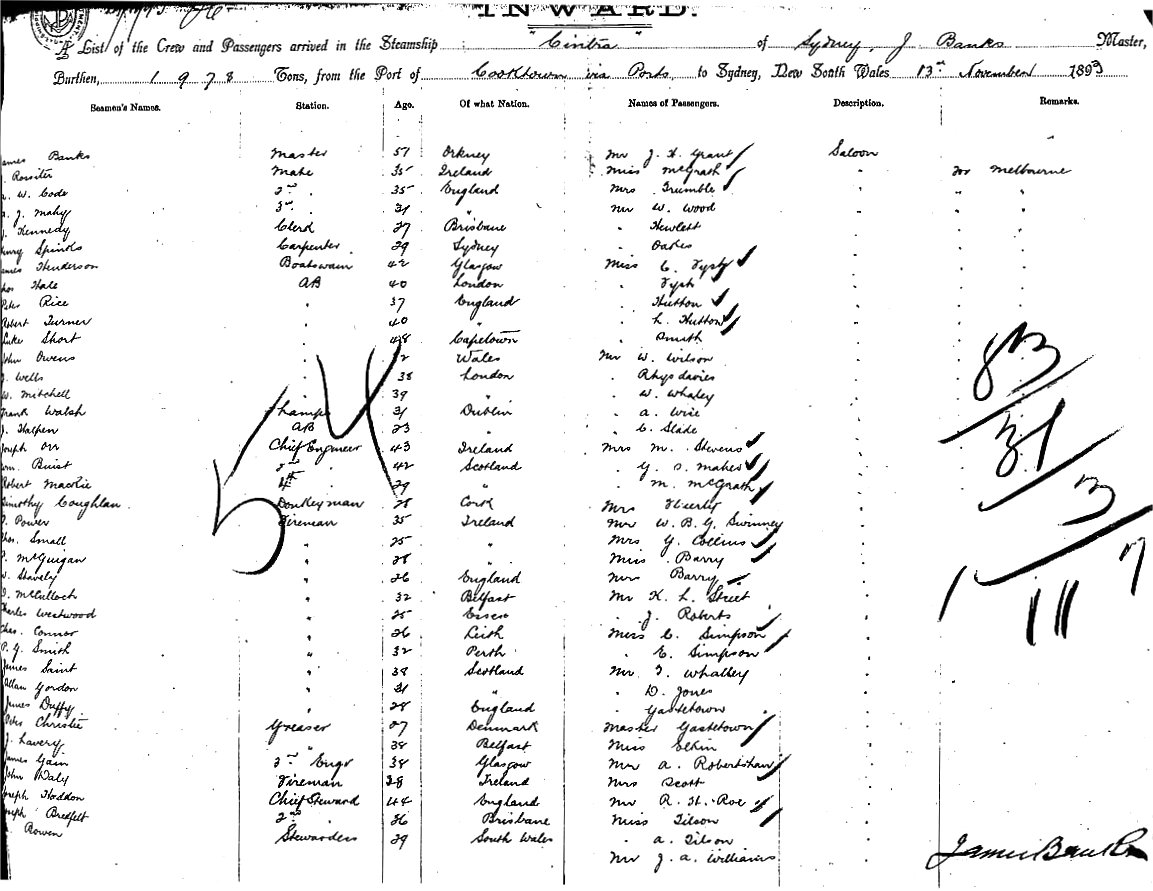 INWARD.
A List of the Crew and Passengers arrived in the Steamship "Cintra" of Sydney, J Banks Master,
Burthen, 1978 Tons, from the Port of Cooktown via Ports to Sydney, New South Wales 13th November 1893
Seamen's Names. Station. Age. Of what Nation. Names of Passengers. Description. Remarks.
ames Banks Master 51 Orkney Mr J. H. Grant Saloon
. Rossiter Mate 35 Ireland Miss McGrath " for Melbourne
. W. Code 2nd " 35 England Mrs Trumble " " "
. J. Mahy 3rd " 31 " Mr W. Wood " " "
. Kennedy Clerk 27 Brisbane " Hewlett " " "
enry Spinks Carpenter 29 Sydney " Oakes " " "
ames Henderson Boatswain 42 Glasgow Miss C. Tysh " " "
hos Hale AB 40 London " Tysh " " "
Peter Rice " 37 England " Hutton "
Robert Turner " 40 " " L. Hutton "
Luke Short " 48 Capetown " Smith "
John Owens " 2 Wales Mr W. Wilson "
J. Wells " 38 London " Rhys davies "
W. Mitchell " 39 " " W. Whaley "
Frank Walsh Lamps 31 Dublin " A. Wise "
J. Halpen AB 23 " " C. Slade "
Joseph Orr Chief Engineer 43 Ireland Mrs M. Stevens "
Wm. Buist 2nd " 42 Scotland " G. S. Maher "
Robert Mackie 4th " 29 " " M. McGrath "
Timothy Coughlan Donkeyman 28 Cork Mrs "
. Power Fireman 35 Ireland Mr W. B. G. Swinney "
Thos. Small " 25 " Mrs G. Collins "
P. McGuigan " 28 " Miss Barry "
W. Stavely " 26 England Mrs Barry "
D. McCulloch " 32 Belfast Mr H. L. Street "
Charles Westwood " 25 Essex " J. Roberts "
Chas. Connor " 26 Leith Miss C. Simpson "
P. G. Smith " 32 Perth " E. Simpson "
James Saint " 38 Scotland Mr T. Whalley "
Allan Gordon " 21 " " D. Jones "
James Duffy " 28 England " Gastetown "
Peter Christie Greaser 27 Denmark Master Gastetown "
J. Lavery " 38 Belfast Miss Elkin "
James Gain 3rd Engr 38 Glasgow Mr A. Robertshaw "
John Daly Fireman 28 Ireland Mrs Scott "
Joseph Hoddon Chief Steward 44 England Mr R. H. Roe "
Joseph Bredfelt 2nd " 36 Brisbane Miss Tilson "
. Rowen Stewardess 29 South Wales " A. Tilson "
Mr J. A. Williams
54
83
31
3
117
James Banks